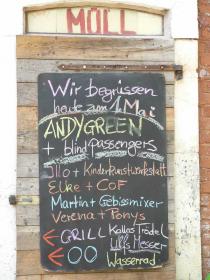 MÖLL
Wir begrüssen
heute zum 1. Mai
ANDYGREEN
+ blind Passengers
Illo + Kinderkunstwerkstatt
Elke + COF
Martin + Gebissmixer
Verena + Ponys
← GRILL Kallas Trödel
Ulfs Messer
← OO Wasserrad